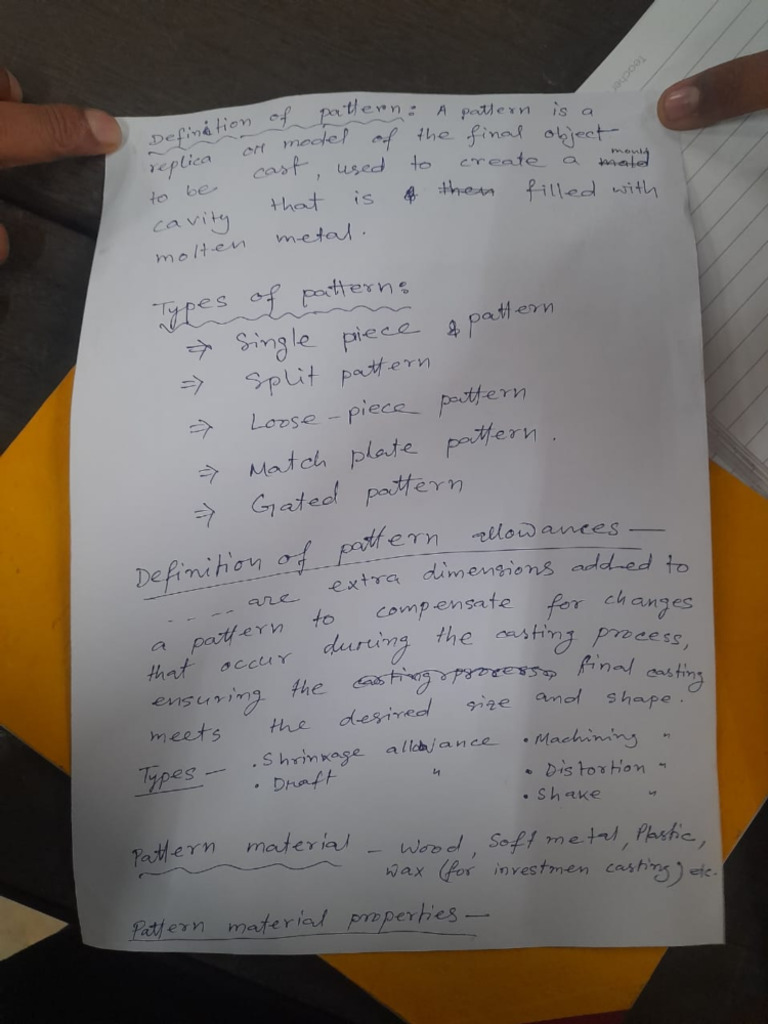 Teacher
Definition of pattern: A pattern is a
replica or model of the final object
to be cast, used to create a mould
cavity that is filled with
molten metal.
Types of pattern:
⇒ Single piece pattern
⇒ Split pattern
⇒ Loose-piece pattern
⇒ Match plate pattern.
⇒ Gated pattern
Definition of pattern allowances —
---- are extra dimensions added to
a pattern to compensate for changes
that occur during the casting process,
ensuring the final casting
meets the desired size and shape.
Types — • Shrinkage allowance • Machining "
• Draft " • Distortion "
• Shake "
Pattern material — Wood, Soft metal, Plastic,
wax (for investmen casting) etc.
Pattern material properties —